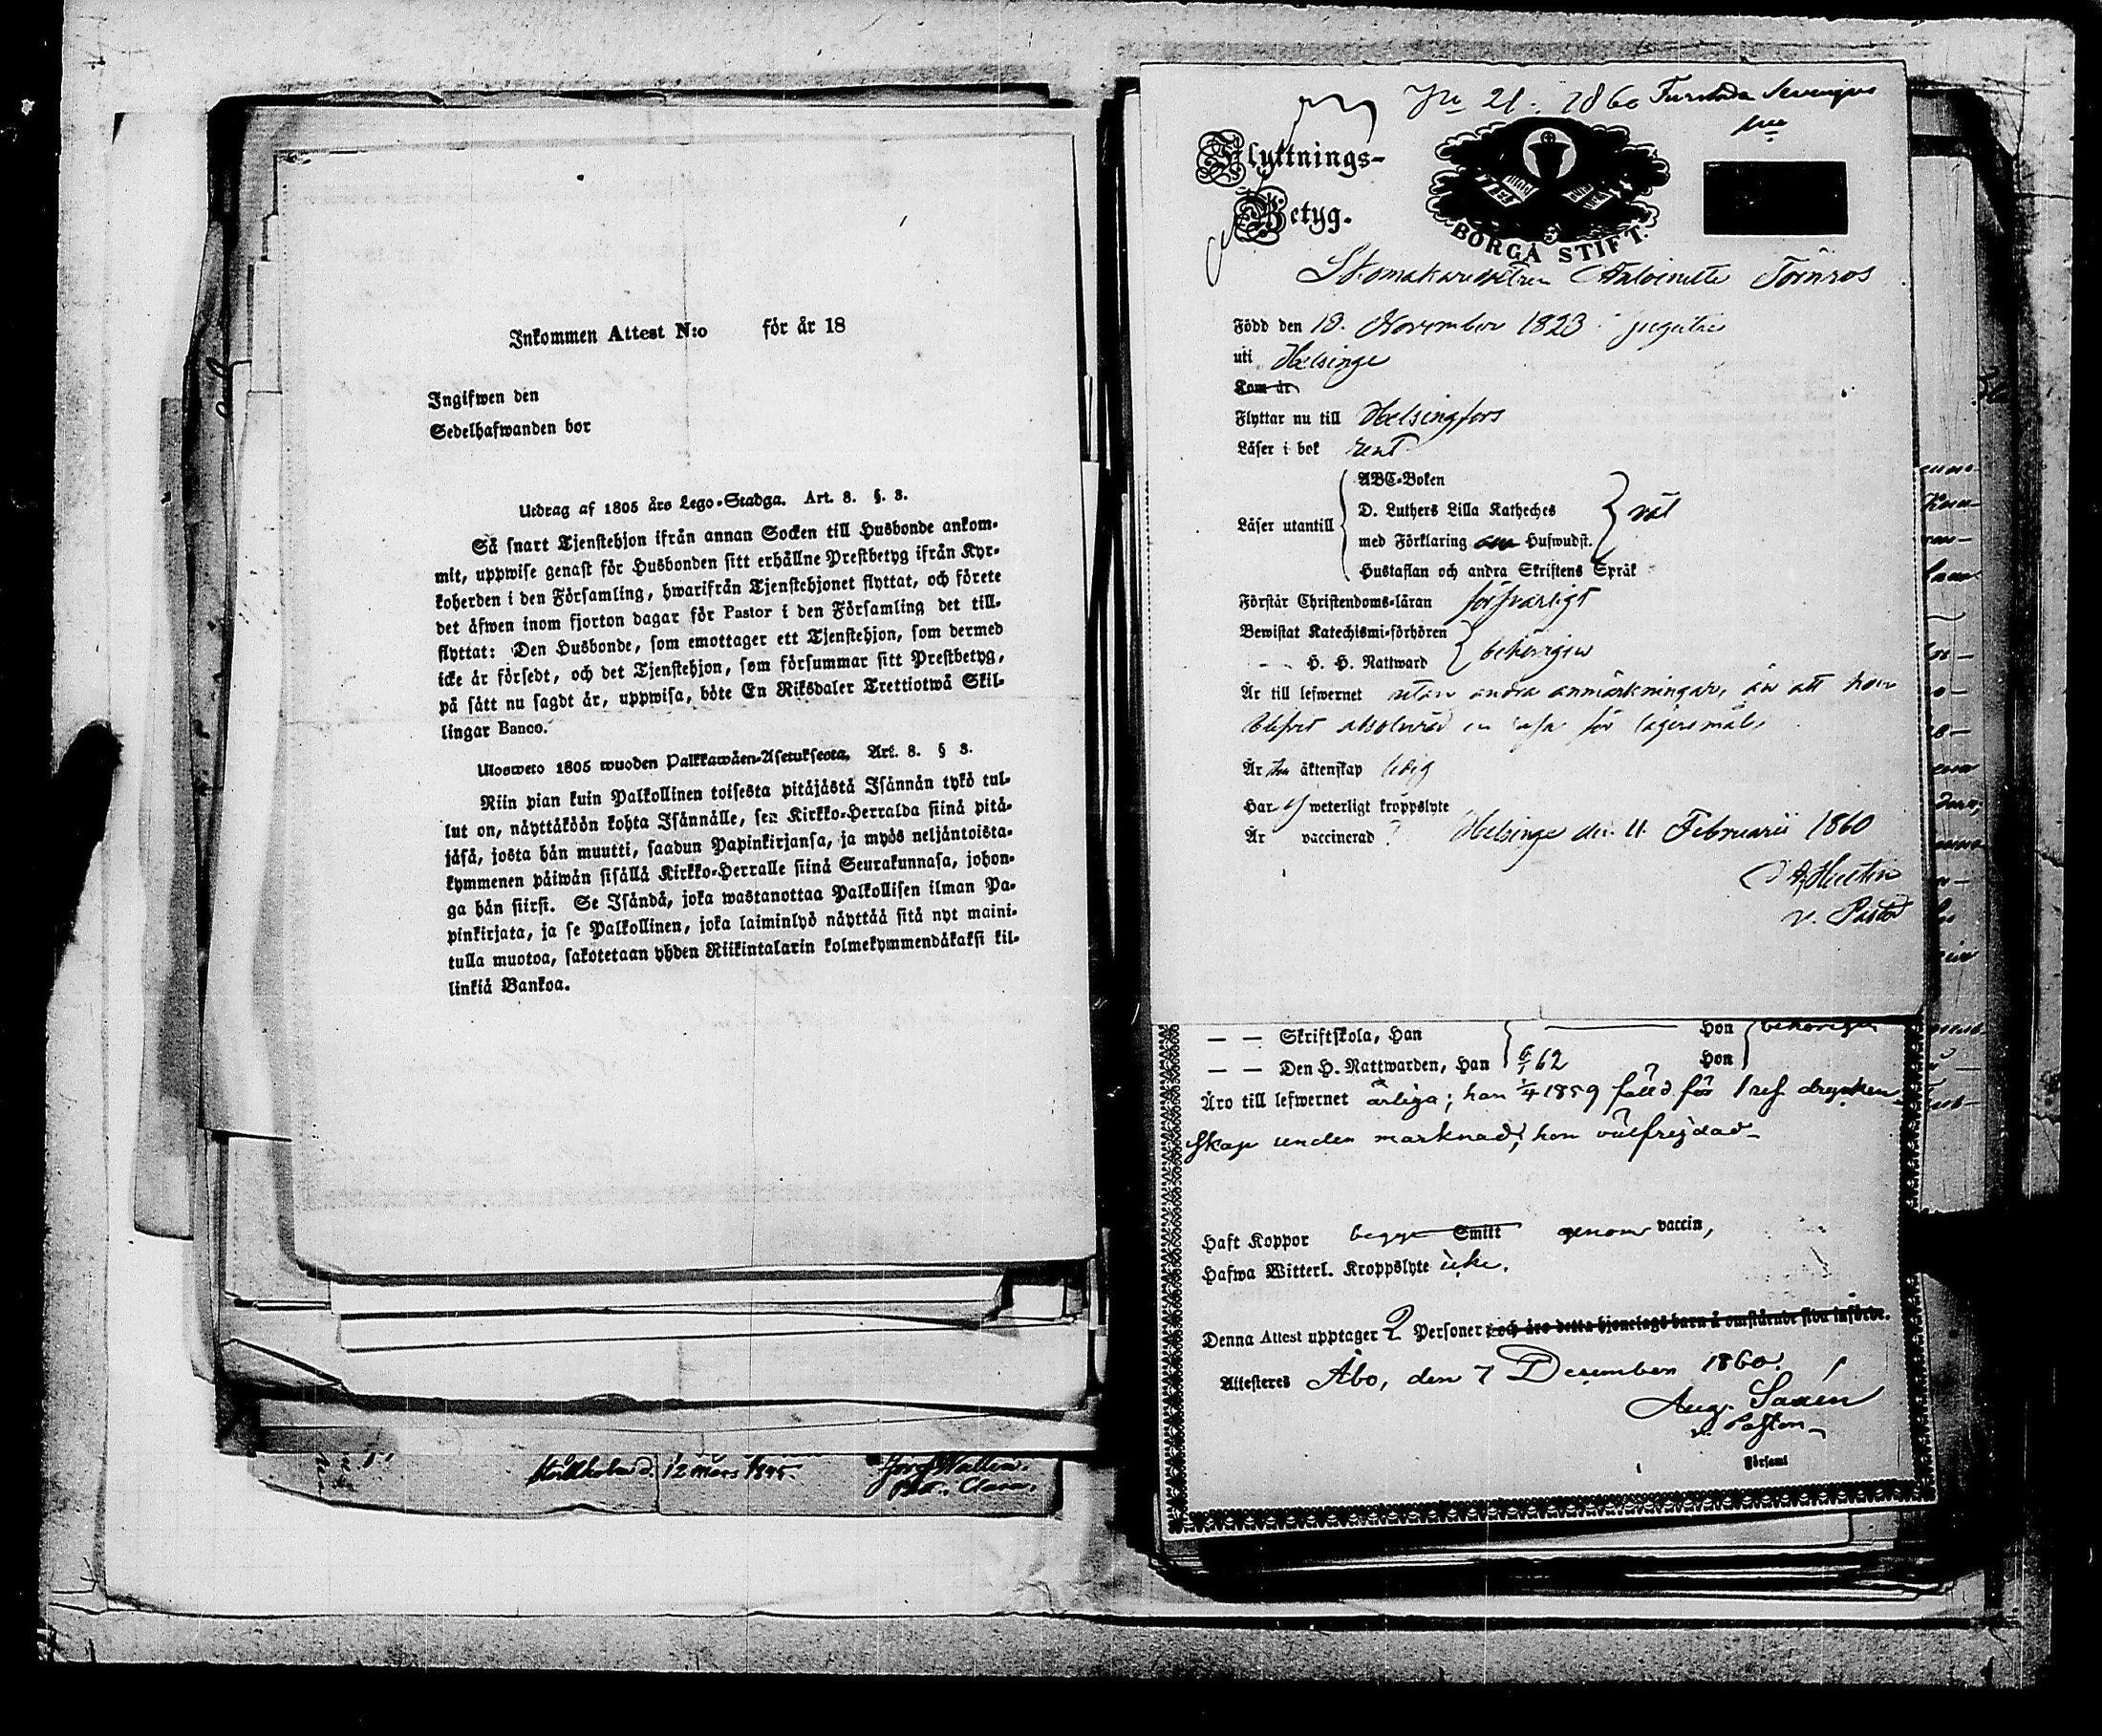 Inkommen Attest N:o för år 18
Ingifwen den
Sedelhafwanden bor
Utdrag af 1805 års Lego-Stadga. Art. 8. §. 3.
Så snart Tjenstehjon ifrån annan Socken till Husbonde ankom-
mit, uppwise genast för Husbonden sitt erhållne Prestbetyg ifrån Kyr-
koherden i den Församling, hwarifrån Tjenstehjonet flyttat, och förete
det äfwen inom fjorton dagar för Pastor i den Församling det till-
flyttat: Den Husbonde, som emottager ett Tjenstehjon, som dermed
icke är försedt, och det Tjenstehjon, som försummar sitt Prestbetyg,
på sätt nu sagdt är, uppwisa, böte En Riksdaler Trettiotwå Skil-
lingar Banco.
Ulosweto 1805 wuoden Palkkawäen-Asetuksesta, Art. 8. § 3.
Niin pian kuin Palkollinen toisesta pitäjästä Isännän tykö tul-
lut on, näyttäköön kohta Isännälle, sen Kirkko-Herralda siinä pitä-
jäsä, josta hän muutti, saadun Papinkirjansa, ja myös neljäntoista-
kymmenen päiwän sisällä Kirkko-Herralle siinä Seurakunnasa, johon-
ga hän siirsi. Se Isändä, joka wastanottaa Palkollisen ilman Pa-
pinkirjata, ja se Palkollinen, joka laiminlyö näyttää sitä nyt maini-
tulla muotoa, sakotetaan yhden Riikintalarin kolmekymmendäkaksi kil-
linkiä Bankoa.
12 Mars 1845.
No 21. 1860
Flyttnings-
Betyg.
BORGÅ STIFT.
Skomakaredottren Antoinette Törnros
Född den 18. November 1823
uti Helsinge
Kom år
Flyttar nu till Helsingfors
Läser i bok rent
Läser utantill
ABC-Boken
D. Luthers Lilla Katheches
med Förklaring Hufwudst.
Hustaflan och andra Skriftens Språk
väl
Förstår Christendoms-läran försvarligt
Bewistat Katechismi-förhören
H. H. Nattward
behörigen
Är till lefwernet utan andra anmärkningar, än att hon
blifvit absolverad för lägersmål
Är äktenskap ledig
Har ej weterligt kroppslyte
Är vaccinerad ?
Helsinge den 11 Februarii 1860
v. Pastor
— — Skriftskola, Han — Hon behörigen
— — Den H. Nattwarden, Han 62 Hon
Äro till lefwernet ärliga; han 1/4 1859 fälld för 1 resf dryken
skap under marknad, hon välfrejdad
Haft Koppor begge Smitt genom vaccin,
Hafwa Witterl. Kroppslyte icke.
Denna Attest upptager 2 Personer och äro detta hjonelags barn å omstående sida införde.
Attesteres Åbo, den 7 December 1860.
Aug. Saxén
v. Pastor
Församl